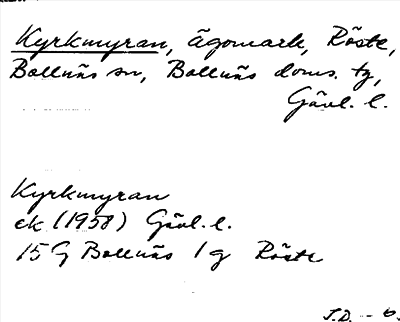 Kyrkmyran, ägomark, Röste,
Bollnäs sn, Bollnäs doms. tg,
Gävl. l.
Kyrkmyran
ek (1958) Gävl. l.
15 G Bollnäs 1 g Röste
J.D. - 6